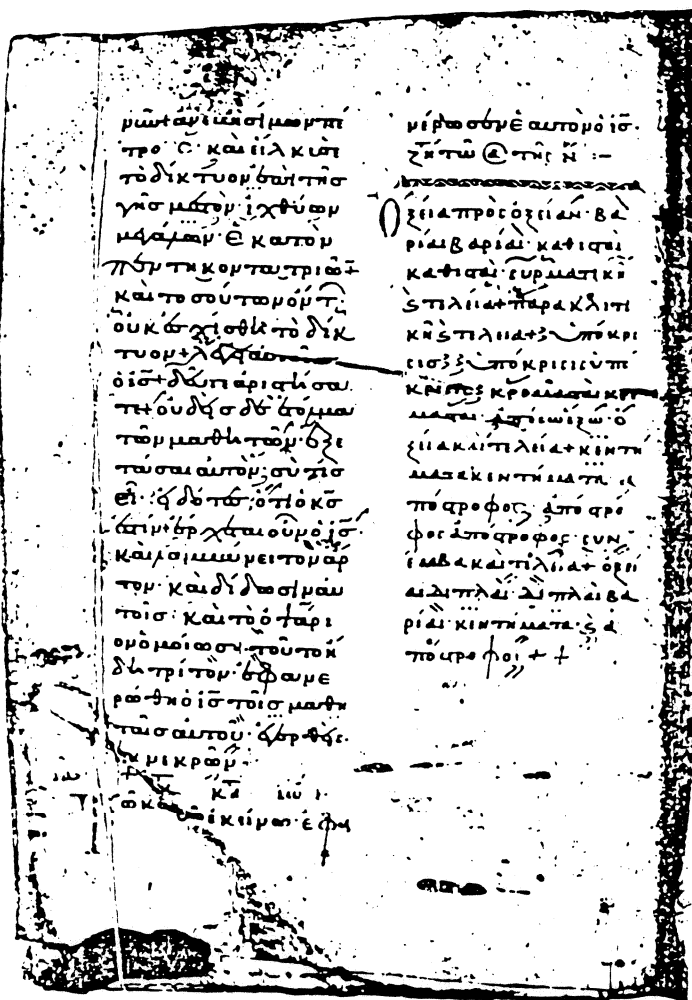 σίμων πέ
τρος καὶ εἵλκυσε
τὸ δίκτυον ἐπὶ τῆσ
γῆσ μεστὸν ἰχθύων
μεγάλων· ἑκατὸν
πεντηκοντατριῶν+
καὶ τοσούτων ὄντ·
οὐκ ἐσχίσθη τὸ δίκ
τυον+ λέγει
ὁ ισ̅+ δεῦτε ἀριστήσα
τε+ οὐδεὶσ δὲ ἐτόλμα
τῶν μαθητῶν· ἐξε
τάσαι αὐτὸν· σὺ τίσ
εἶ· εἰδότεσ· ὅτι ὁ κσ̅
ἐστιν+ ἔρχεται οὖν ὁ ισ̅·
καὶ λαμβάνει τὸν ἄρ
τον· καὶ δίδωσιν αὐ
τοῖσ· καὶ τὸ ὀψάρι
ον ὁμοίωσ· τοῦτο ἤ
δη τρίτον· ἐφανε
ρώθη ὁ ισ̅ τοῖσ μαθη
ταῖσ αὐτοῦ· ἐγερθεὶσ
ἐκ νεκρῶν·
ἐκείνω ἐφα
νέρωσεν ἑαυτὸν ὁ ισ̅·
ζήτω α τῆς Ν̅ :–
Ὀξεῖα πρὸς ὀξεῖαν· βα
ρεῖαι βαρεῖαι· καθισταὶ
καθισταὶ· συρματικὴ
ς τελεία+ παρακλιτι
κὴ ς τελεία+ ὑπόκρι
σισ ὑπόκρισισ ὑπό
κρισισ κρεμασταὶ κρε
μασταὶ· ἀπέσω ἔξω· ὀ
ξεῖα κ τελεία+ κεντή
ματα κεντήματα· ἀ
πόστροφος· ἀπόστρο
φος ἀπόστροφος· συν
έμβα καὶ τελεία+ ὀξεῖ
αι διπλαῖ· διπλαῖ βα
ρεῖαι· κεντήματα· ς ἀ
πόστροφοι + +